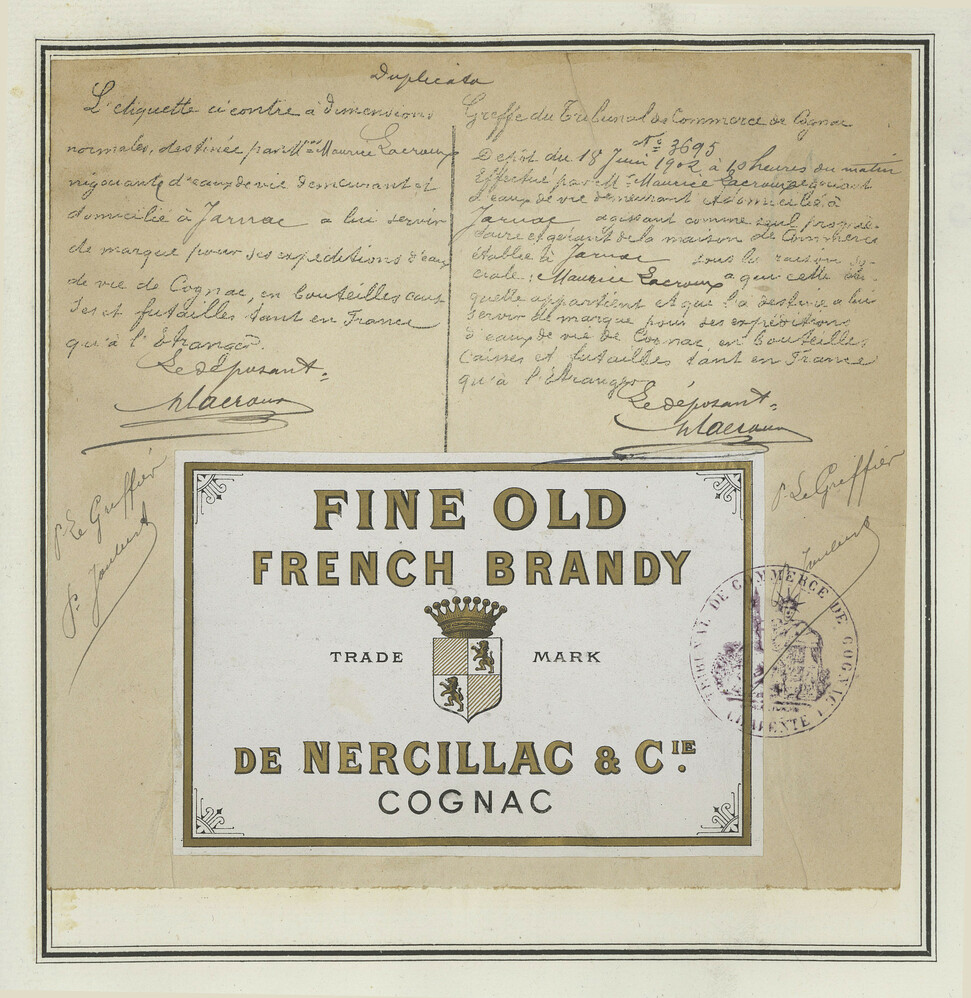 Duplicata
L'étiquette ci contre à dimensions
normales, destinée par Mr Maurice Lacroux
négociant d'eaux de vie demeurant et
domicilié à Jarnac a lui servir
de marque pour ses expeditions d'eaux
de vie de Cognac, en bouteilles cais
ses et futailles tant en France
qu'à l'Etranger.
Le déposant =
MLacroux
P. Le Greffier
P. Joubert
Greffe du Tribunal de Commerce de Cognac
No 3695
Depôt du 18 Juin 1902 à 10 heures du matin
Effectué par Mr Maurice Lacroux négociant
d'eaux de vie demeurant et domicilié à
Jarnac agissant comme seul proprié-
taire et gérant de la maison de Commerce
établie à Jarnac sous la raison so-
ciale: Maurice Lacroux a qui cette éti-
quette appartient et qui l'a destinée a lui
servir de marque pour ses expéditions
d'eaux de vie de Cognac, en bouteilles
Caisses et futailles tant en France
qu'à l'Etranger
Le déposant =
MLacroux
P. Le Greffier
Joubert
FINE OLD
FRENCH BRANDY
TRADE MARK
DE NERCILLAC & CIE.
COGNAC
TRIBUNAL DE COMMERCE DE COGNAC
CHARENTE